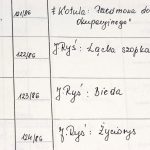 121/86 F. Kotula: "Przedmowa do
okupacyjnego"
122/86 J. Ryś: Łącka szopka
123/86 J. Ryś: Bieda
124/86 J. Ryś: Życiorys